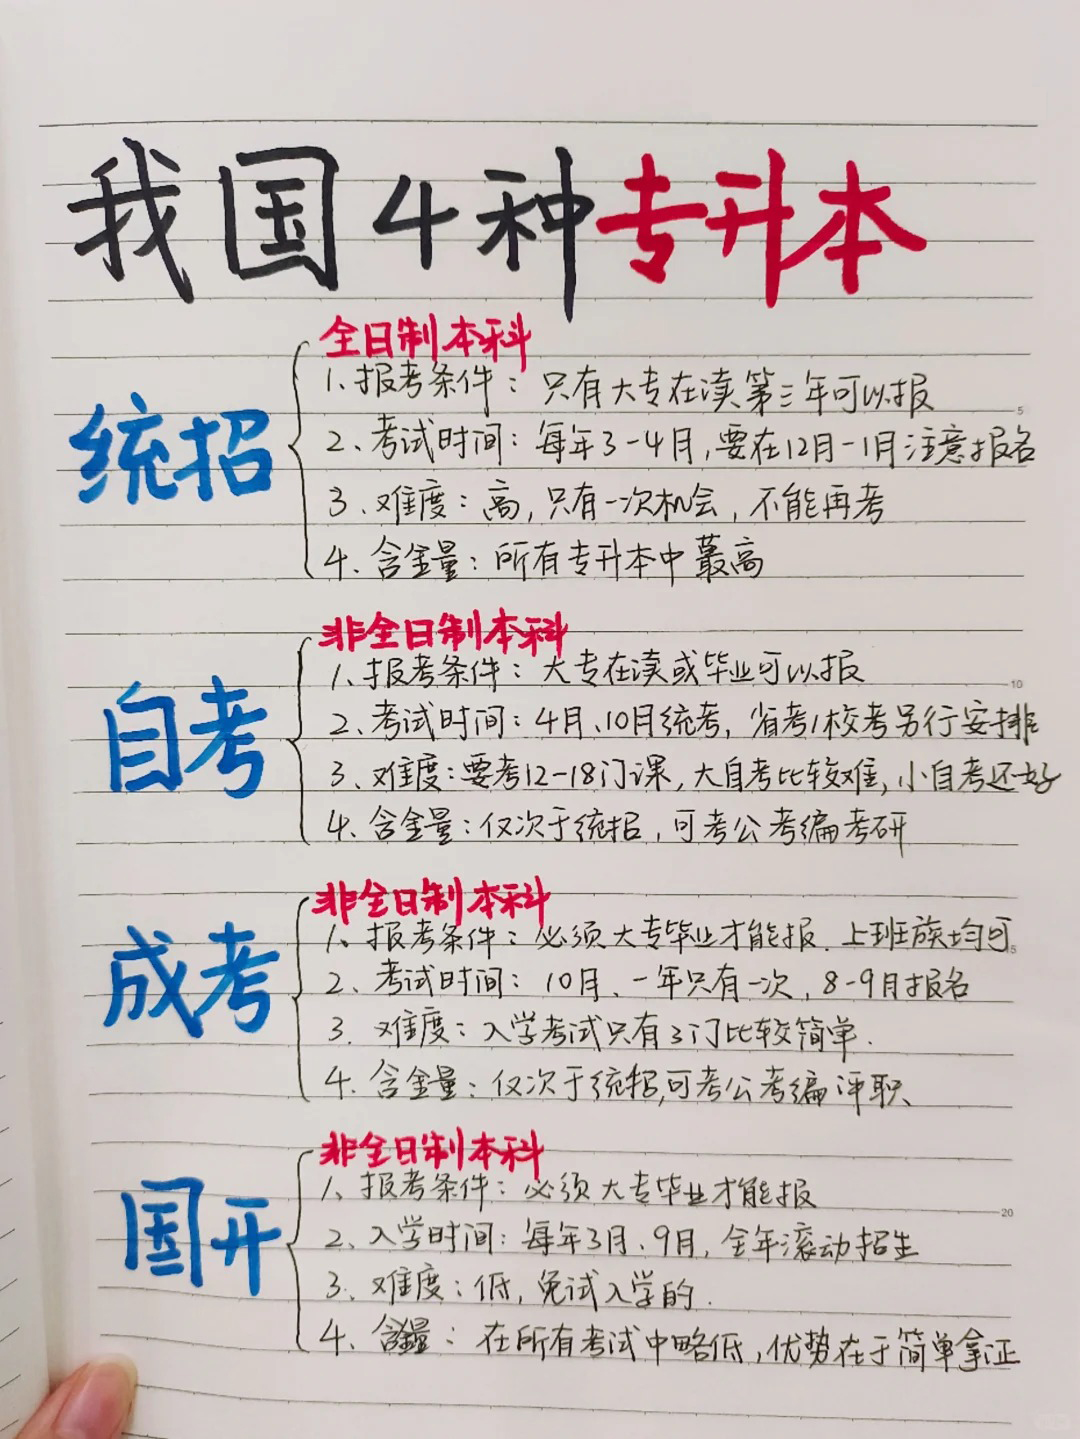 我国4种专升本
统招
全日制本科
1、报考条件：只有大专在读第三年可以报
2、考试时间：每年3-4月，要在12月-1月注意报名
3、难度：高，只有一次机会，不能再考
4、含金量：所有专升本中最高
自考
非全日制本科
1、报考条件：大专在读或毕业可以报
2、考试时间：4月、10月统考，省考/校考另行安排
3、难度：要考12-18门课，大自考比较难，小自考还好
4、含金量：仅次于统招，可考公考编考研
成考
非全日制本科
1、报考条件：必须大专毕业才能报．上班族均可
2、考试时间：10月、一年只有一次，8-9月报名
3、难度：入学考试只有3门比较简单．
4、含金量：仅次于统招，可考公考编评职、
国开
非全日制本科
1、报考条件：必须大专毕业才能报
2、入学时间：每年3月、9月，全年滚动招生
3、难度：低，免试入学的．
4、含金量：在所有考试中略低，优势在于简单拿证
5
10
20